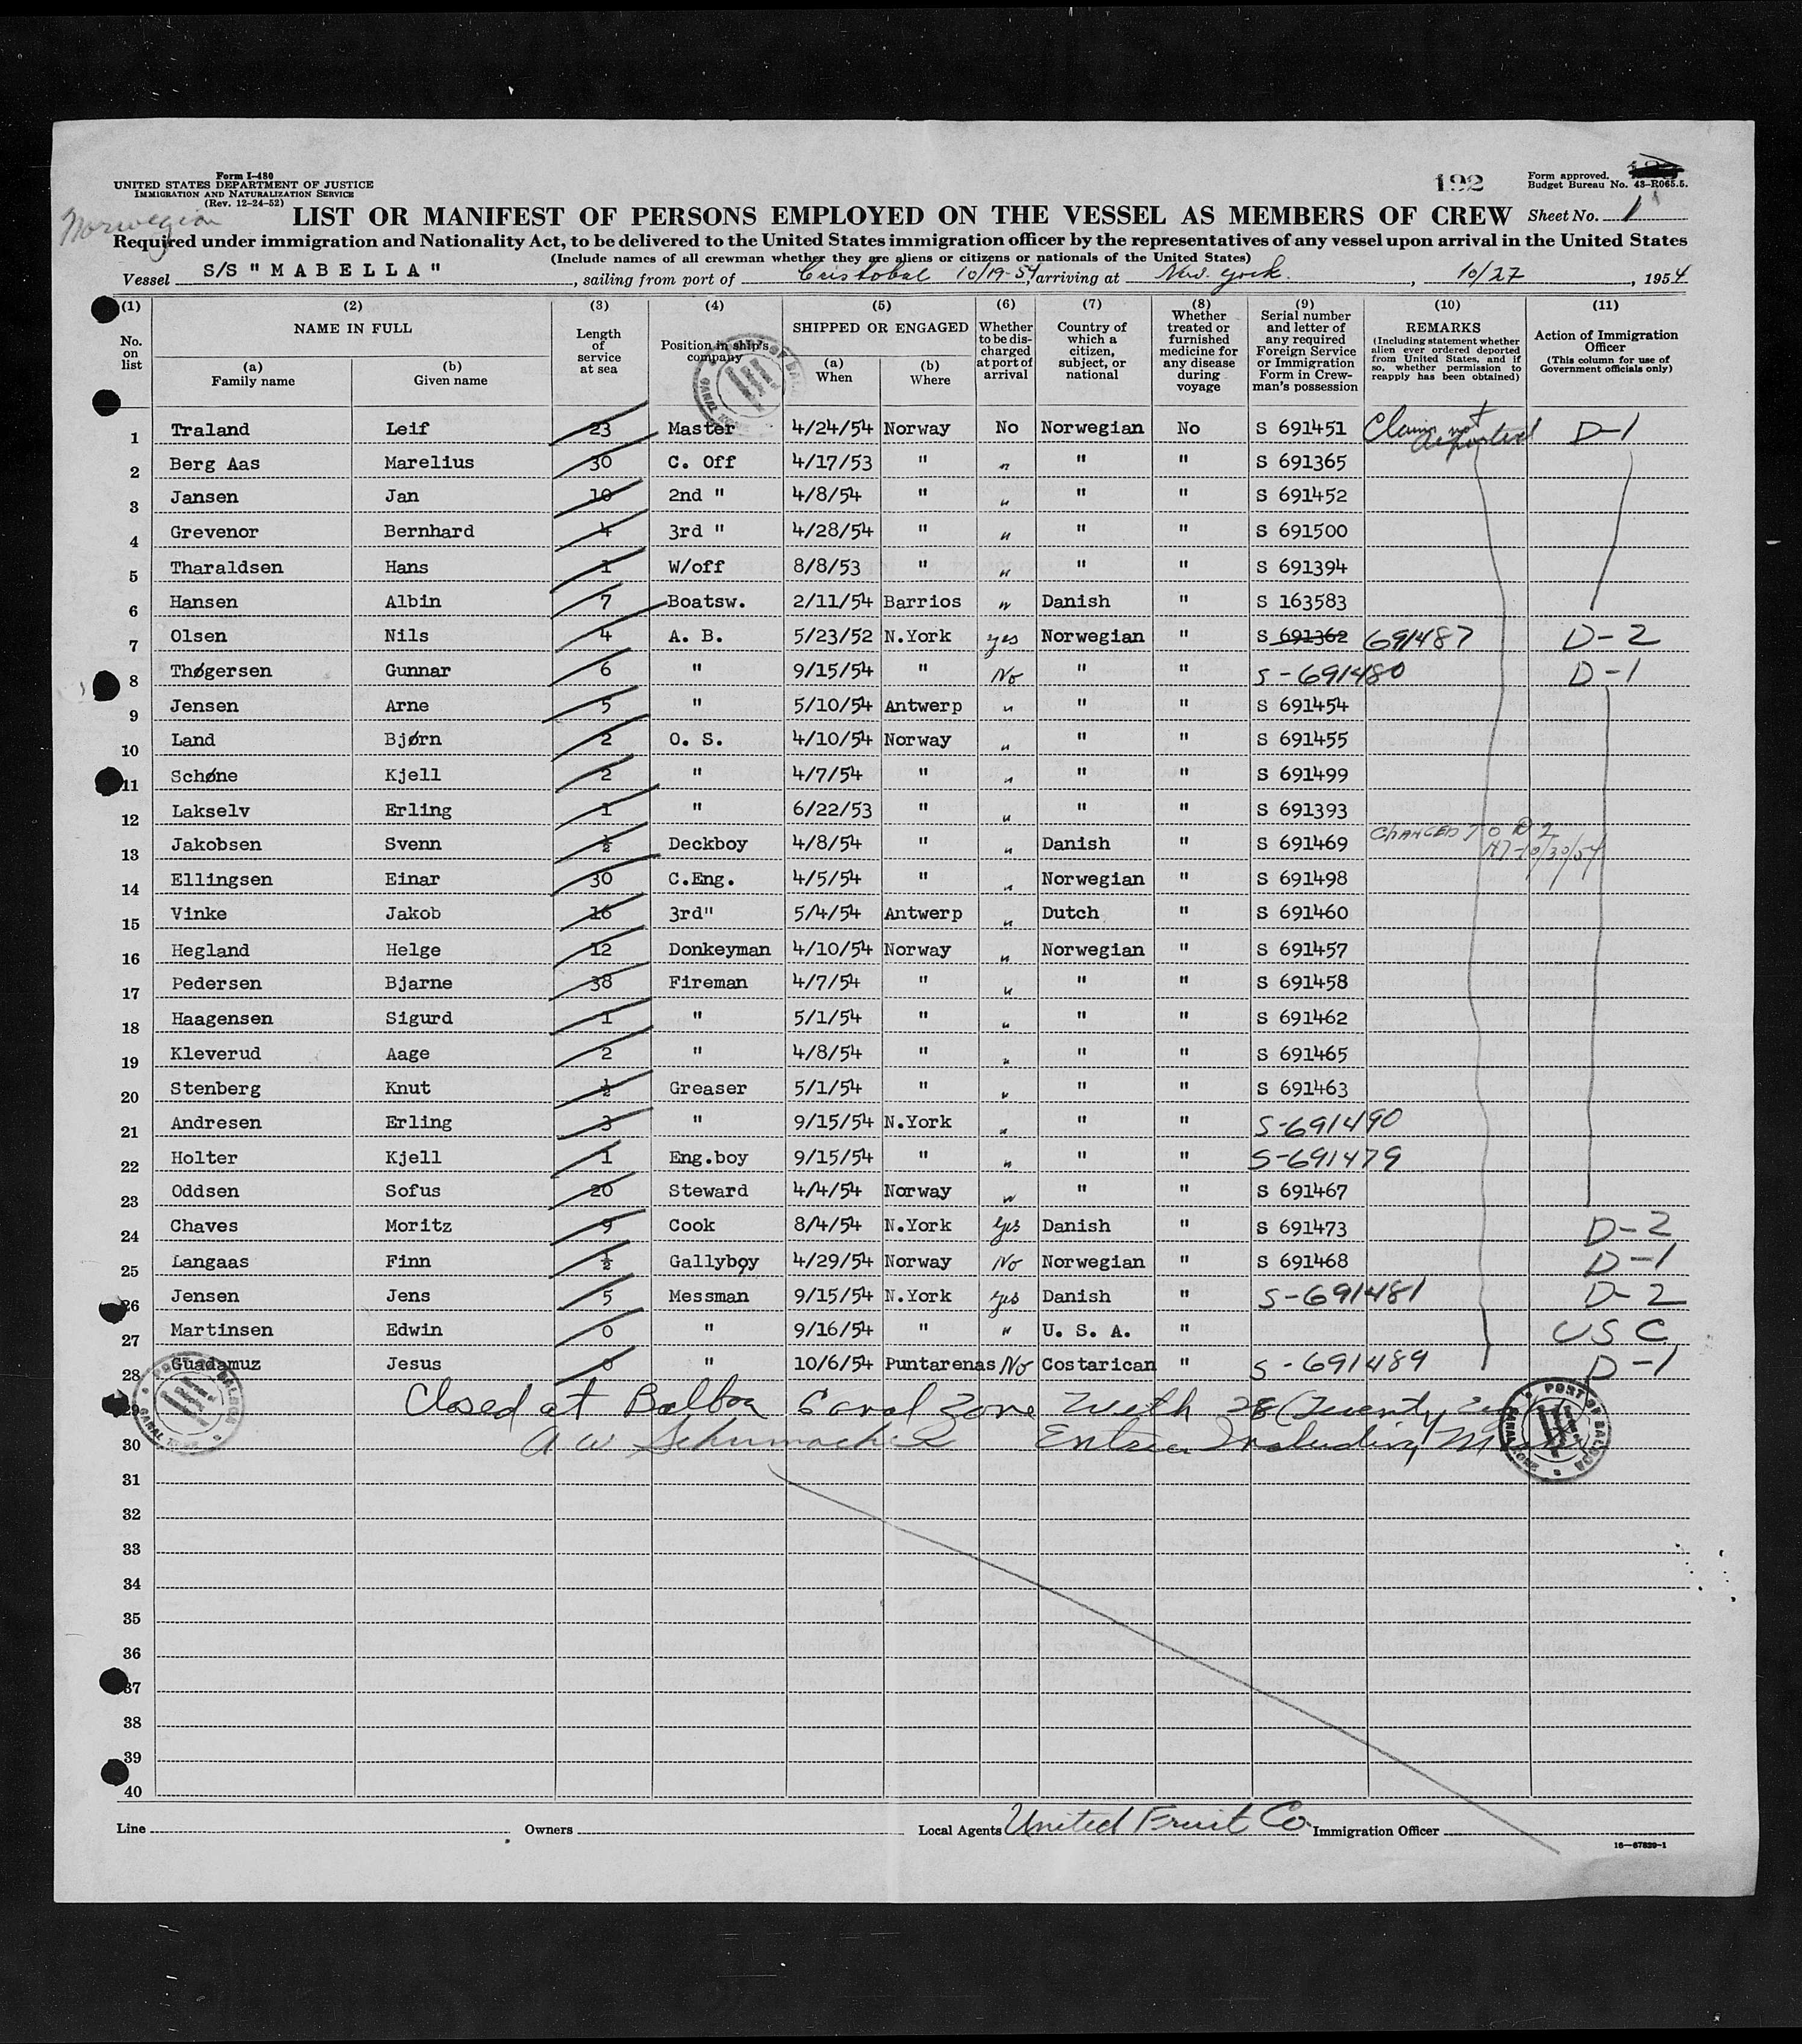 Form I-480
UNITED STATES DEPARTMENT OF JUSTICE
IMMIGRATION AND NATURALIZATION SERVICE
(Rev. 12-24-52)
192
Form approved.
Budget Bureau No. 43-R065.5.
Norwegian
LIST OR MANIFEST OF PERSONS EMPLOYED ON THE VESSEL AS MEMBERS OF CREW
Sheet No. 1
Required under immigration and Nationality Act, to be delivered to the United States immigration officer by the representatives of any vessel upon arrival in the United States
(Include names of all crewman whether they are aliens or citizens or nationals of the United States)
Vessel S/S "MABELLA", sailing from port of Cristobal 10/19-54, arriving at New York, 10/27, 1954
(1) (2) (3) (4) (5) (6) (7) (8) (9) (10) (11)
No. on list
NAME IN FULL
(a) Family name
(b) Given name
Length of service at sea
Position in ship's company
SHIPPED OR ENGAGED
(a) When
(b) Where
Whether to be discharged at port of arrival
Country of which a citizen, subject, or national
Whether treated or furnished medicine for any disease during voyage
Serial number and letter of any required Foreign Service or Immigration Form in Crewman's possession
REMARKS
(Including statement whether alien ever ordered deported from United States, and if so, whether permission to reapply has been obtained)
Action of Immigration Officer
(This column for use of Government officials only)
1 Traland Leif 23 Master 4/24/54 Norway No Norwegian No S 691451 Claims not deported D-1
2 Berg Aas Marelius 30 C. Off 4/17/53 " " " " S 691365
3 Jansen Jan 10 2nd " 4/8/54 " " " " S 691452
4 Grevenor Bernhard 4 3rd " 4/28/54 " " " " S 691500
5 Tharaldsen Hans 1 W/off 8/8/53 " " " " S 691394
6 Hansen Albin 7 Boatsw. 2/11/54 Barrios " Danish " S 163583
7 Olsen Nils 4 A. B. 5/23/52 N.York yes Norwegian " S 691362 691487 D-2
8 Thøgersen Gunnar 6 " 9/15/54 " No " " S-691480 D-1
9 Jensen Arne 5 " 5/10/54 Antwerp " " " S 691454
10 Land Bjørn 2 O. S. 4/10/54 Norway " " " S 691455
11 Schøne Kjell 2 " 4/7/54 " " " " S 691499
12 Lakselv Erling 1 " 6/22/53 " " " " S 691393
13 Jakobsen Svenn ½ Deckboy 4/8/54 " " Danish " S 691469 CHANGED TO D 2 10/30/54
14 Ellingsen Einar 30 C.Eng. 4/5/54 " " Norwegian " S 691498
15 Vinke Jakob 16 3rd" 5/4/54 Antwerp " Dutch " S 691460
16 Hegland Helge 12 Donkeyman 4/10/54 Norway " Norwegian " S 691457
17 Pedersen Bjarne 38 Fireman 4/7/54 " " " " S 691458
18 Haagensen Sigurd 1 " 5/1/54 " " " " S 691462
19 Kleverud Aage 2 " 4/8/54 " " " " S 691465
20 Stenberg Knut ½ Greaser 5/1/54 " " " " S 691463
21 Andresen Erling 3 " 9/15/54 N.York " " " S-691490
22 Holter Kjell 1 Eng.boy 9/15/54 " " " " S-691479
23 Oddsen Sofus 20 Steward 4/4/54 Norway " " " S 691467
24 Chaves Moritz 9 Cook 8/4/54 N.York yes Danish " S 691473 D-2
25 Langaas Finn ½ Gallyboy 4/29/54 Norway No Norwegian " S 691468 D-1
26 Jensen Jens 5 Messman 9/15/54 N.York yes Danish " S-691481 D-2
27 Martinsen Edwin 0 " 9/16/54 " " U. S. A. " USC
28 Guadamuz Jesus 0 " 10/6/54 Puntarenas No Costarican " S-691489 D-1
29 Closed at Balboa Canal Zone With 28 (Twenty Eight)
30 A W Schumacher Entries Including Master
PORT OF BALBOA
31
32
33
34
35
36
37
38
39
40
Line Owners Local Agents United Fruit Co. Immigration Officer
16-67829-1